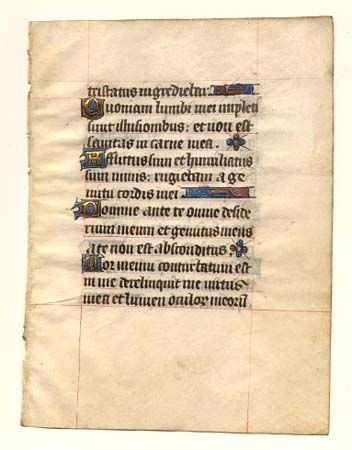 tristatus ingrediebar.
Quoniam lumbi mei impleti
sunt illusionibus: et non est
sanitas in carne mea.
Afflictus sum et humiliatus
sum nimis: rugiebam a ge
mitu cordis mei
Domine ante te omne deside
rium meum et gemitus meus
a te non est absconditus
Cor meum conturbatum est
in me dereliquit me virtus
mea et lumen oculor meorū